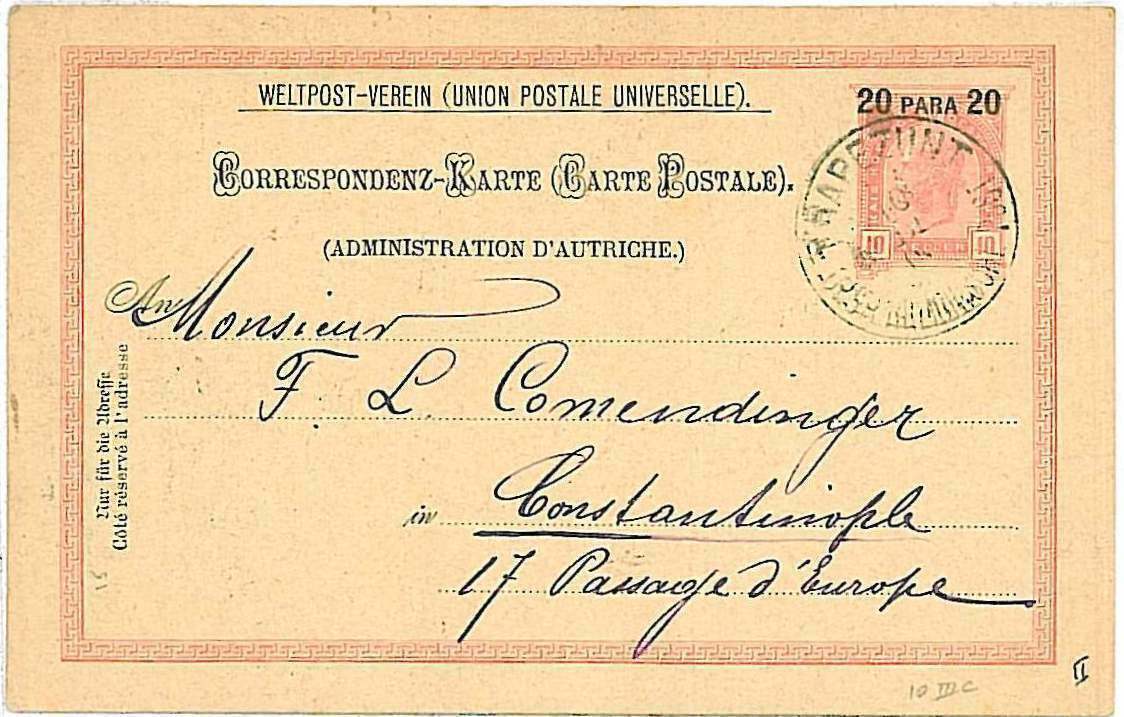 WELTPOST-VEREIN (UNION POSTALE UNIVERSELLE).
20 PARA 20
CORRESPONDENZ-KARTE (CARTE POSTALE).
(ADMINISTRATION D'AUTRICHE.)
TRAPEZUNT
10 10
An Monsieur
F. L. Comendinger
in Constantinople
17 Passage d'Europe
Nur für die Adresse
Coté réservé à l'adresse
10 III C
II